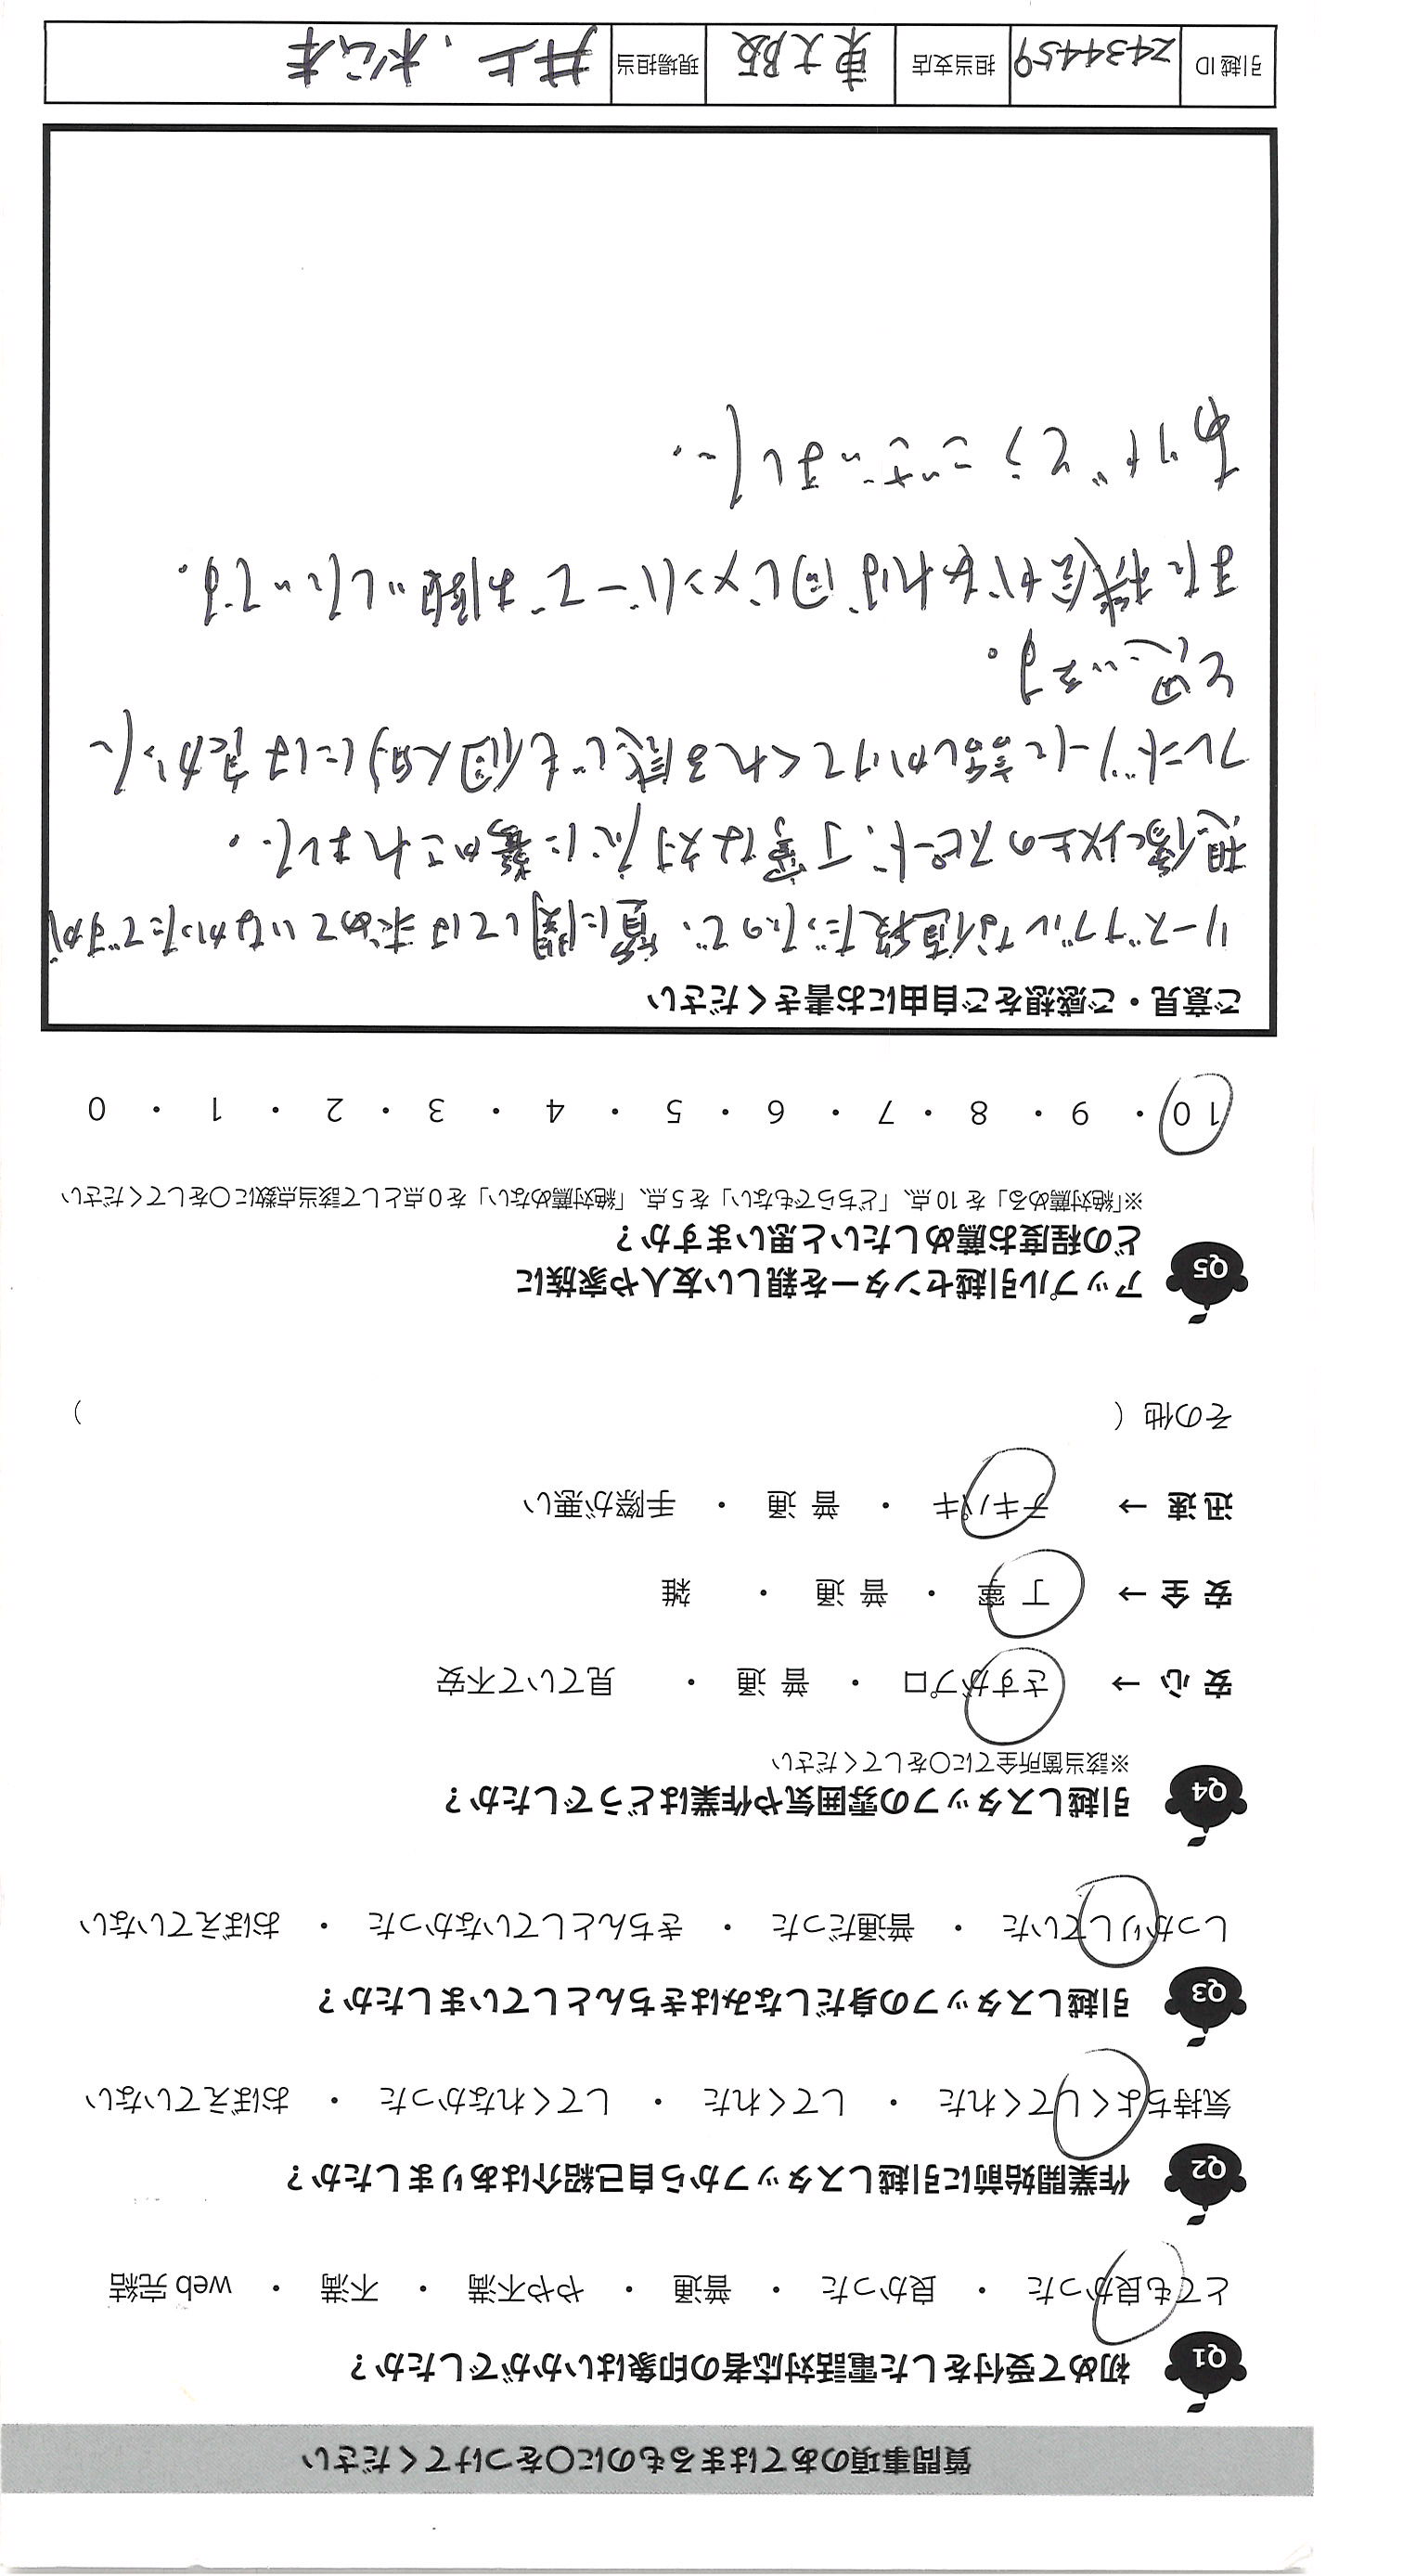 質問事項のあてはまるものに○をつけてください
Q1 初めて受付をした電話対応者の印象はいかがでしたか？
とても良かった ・ 良かった ・ 普通 ・ やや不満 ・ 不満 ・ web 完結
Q2 作業開始前に引越しスタッフから自己紹介はありましたか？
気持ちよくしてくれた ・ してくれた ・ してくれなかった ・ おぼえていない
Q3 引越しスタッフの身だしなみはきちんとしていましたか？
しっかりしていた ・ 普通だった ・ きちんとしていなかった ・ おぼえていない
Q4 引越しスタッフの雰囲気や作業はどうでしたか？
※該当箇所全てに○をしてください
安 心 → さすがプロ ・ 普 通 ・ 見ていて不安
安 全 → 丁 寧 ・ 普 通 ・ 雑
迅 速 → テキパキ ・ 普 通 ・ 手際が悪い
その他（ ）
Q5 アップル引越センターを親しい友人や家族に
どの程度お薦めしたいと思いますか？
※「絶対薦める」を 10 点、「どちらでもない」を 5 点、「絶対薦めない」を 0 点として該当点数に○をしてください
10 ・ 9 ・ 8 ・ 7 ・ 6 ・ 5 ・ 4 ・ 3 ・ 2 ・ 1 ・ 0
ご意見・ご感想をご自由にお書きください
リーズナブルな値段だったので、質に関しては求めていなかったですが
想像以上のスピード、丁寧な対応に驚かされました。
フレンドリーに話しかけてくれる感じも個人的には良かった
と思います。
また機会があれば同じメンバーでお願いしたいです。
ありがとうございました。
引越 ID 2434459 担当支店 東大阪 現場担当 井上、松本